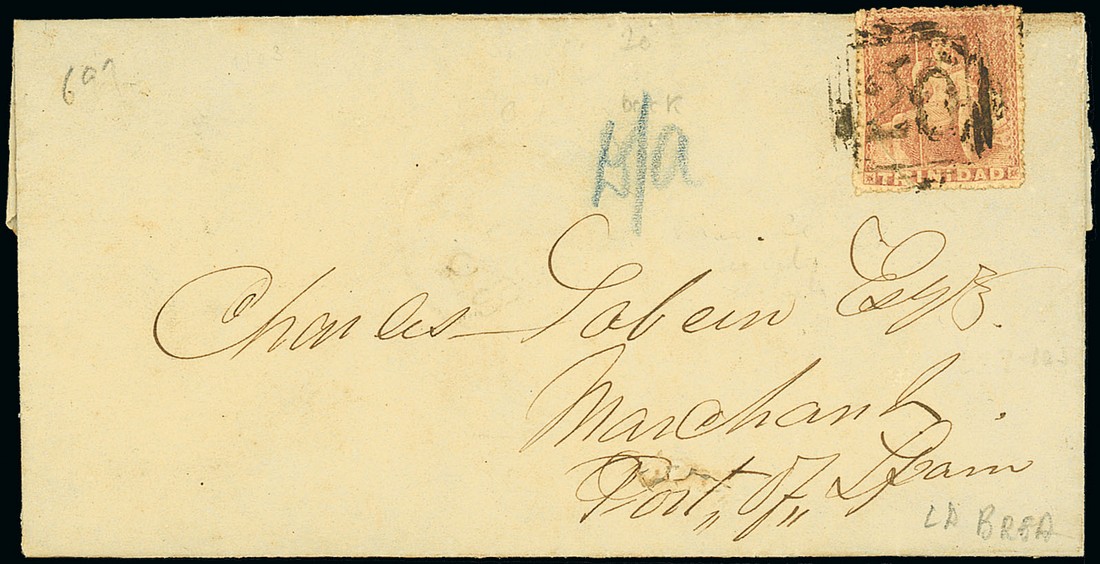 697
20
back
TRINIDAD
Charles Sabein Esqr.
Marchant.
Port „of„ Spain
LA BREA